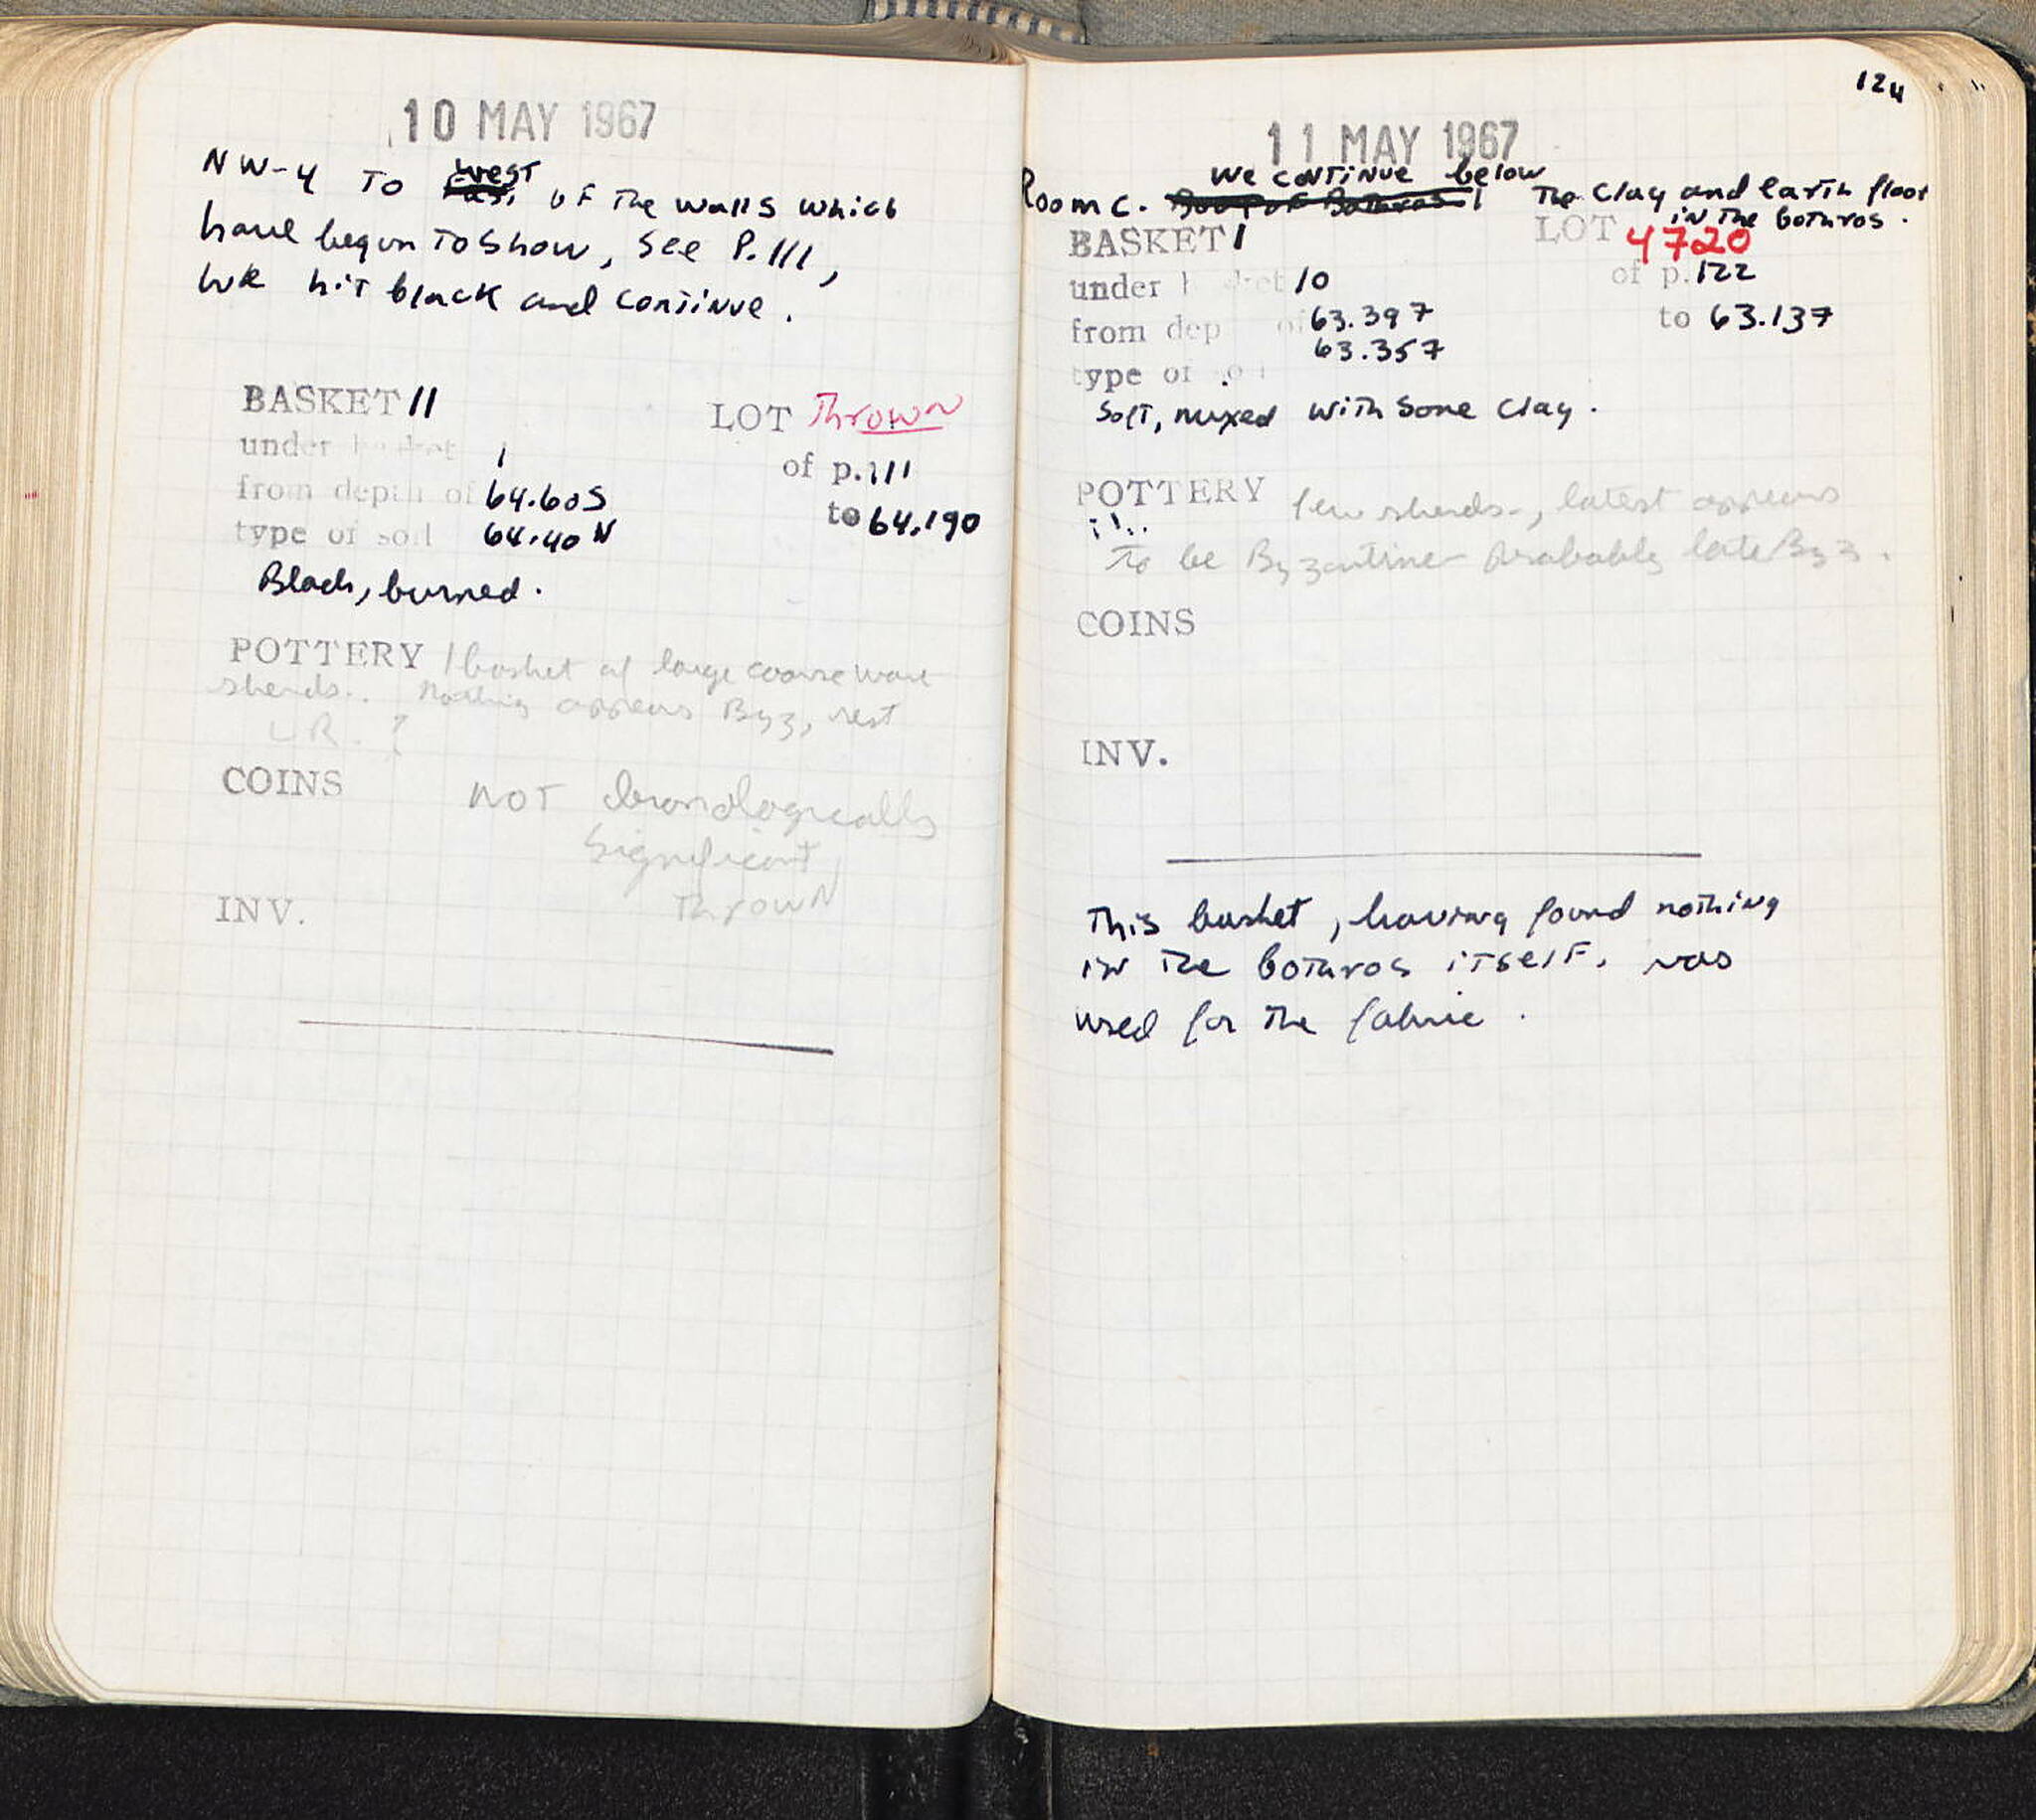 10 MAY 1967
NW-4 To west of The walls which
have begun To show, see P. 111,
we hit black and continue.
BASKET 11 LOT Thrown
under basket 1 of p. 111
from depth of 64.60S to 64.190
type of soil 64.40 N
Black, burned.
POTTERY 1 basket of large coarse ware
sherds. Nothing appears Byz, rest
LR. ?
COINS NOT chronologically
significant
Thrown
INV.
124
11 MAY 1967
we continue below
Room C. The clay and earth floor
in the bothros.
BASKET 1 LOT 4720
under basket 10 of p. 122
from dep of 63.397 to 63.137
63.357
type of soil
Soft, mixed with some clay.
POTTERY few sherds, latest appears
To be Byzantine probably late Byz.
COINS
INV.
This basket, having found nothing
in the bothros itself, was
used for the fabric.